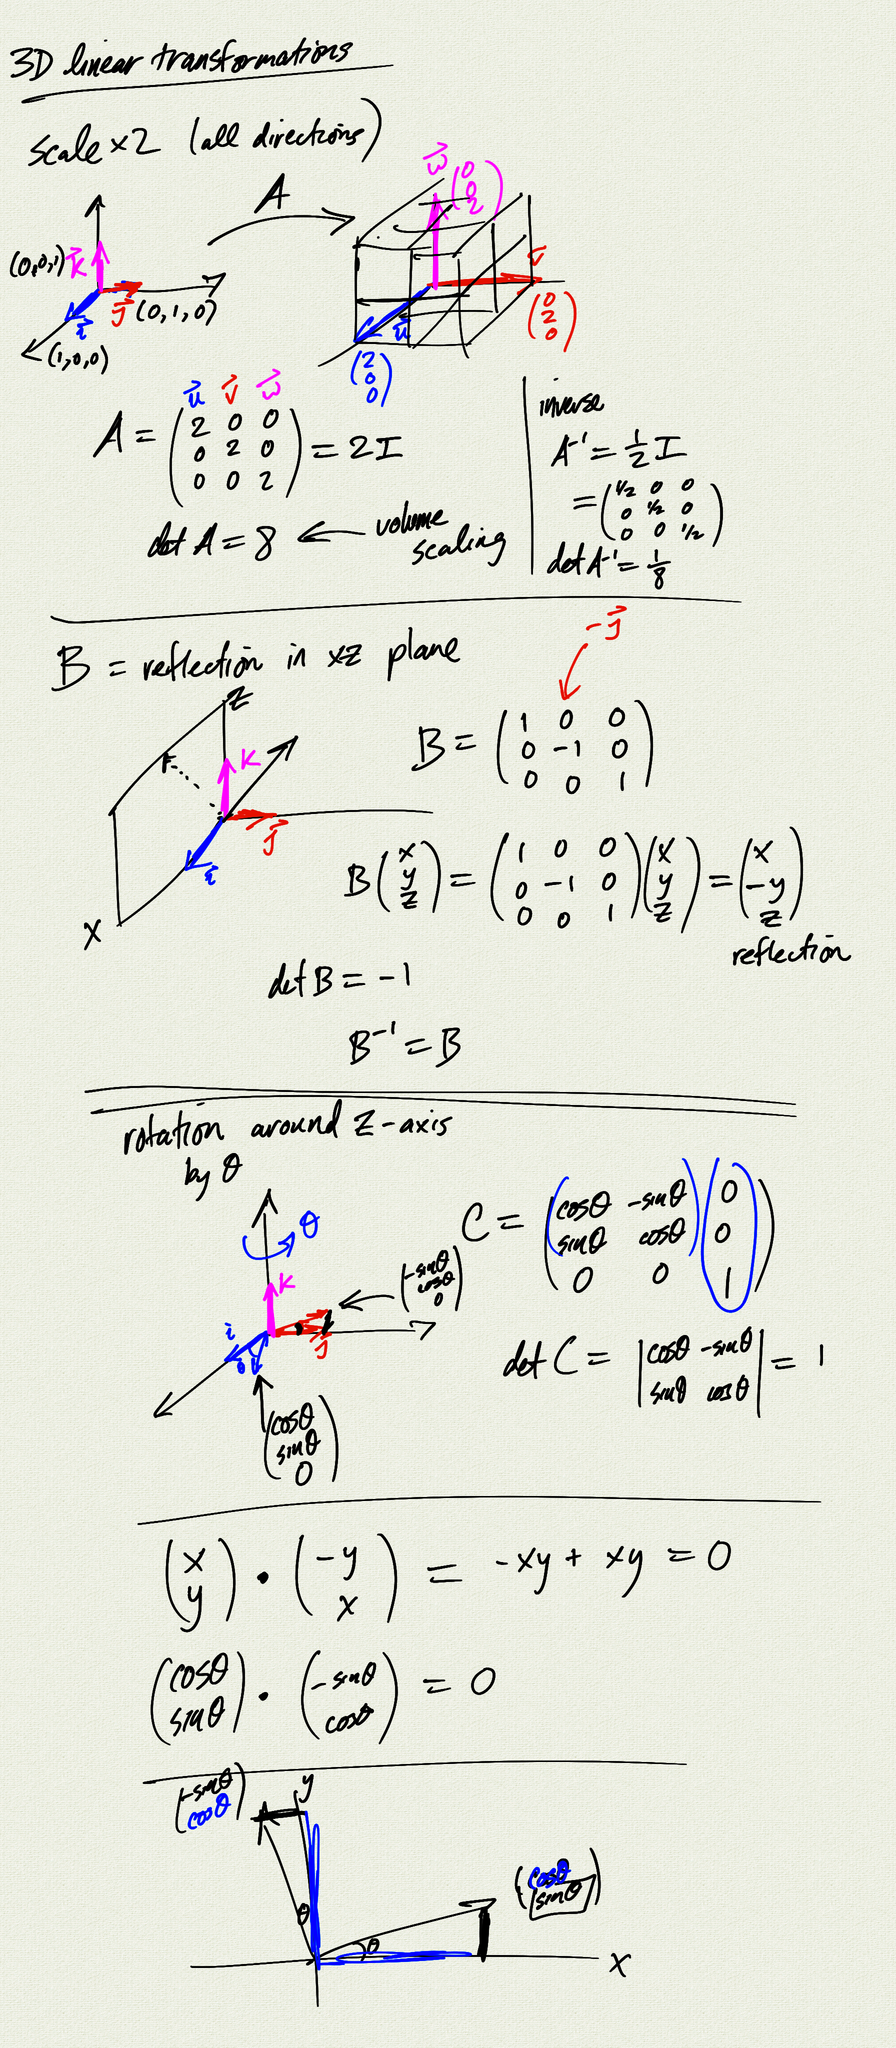 3D linear transformations
scale ×2 (all directions)
A
(0,0,1) k⃗
j⃗ (0,1,0)
i⃗
(1,0,0)
w⃗ (0 0 2)
v⃗
(0 2 0)
u⃗
(2 0 0)
u⃗ v⃗ w⃗
A = (2 0 0
0 2 0
0 0 2) = 2I
det A = 8 ← volume scaling
inverse
A⁻¹ = 1/2 I
= (1/2 0 0
0 1/2 0
0 0 1/2)
det A⁻¹ = 1/8
B = reflection in xz plane
-j⃗
B = (1 0 0
0 -1 0
0 0 1)
z
k
j⃗
i⃗
x
B (x y z) = (1 0 0
0 -1 0
0 0 1) (x y z) = (x -y z)
reflection
det B = -1
B⁻¹ = B
rotation around z-axis
by θ
θ
k
i
j
θ
(-sinθ cosθ 0)
(cosθ sinθ 0)
C = (cosθ -sinθ 0
sinθ cosθ 0
0 0 1)
det C = |cosθ -sinθ
sinθ cosθ| = 1
(x y) · (-y x) = -xy + xy = 0
(cosθ sinθ) · (-sinθ cosθ) = 0
(-sinθ cosθ)
y
(cosθ sinθ)
θ
θ
x